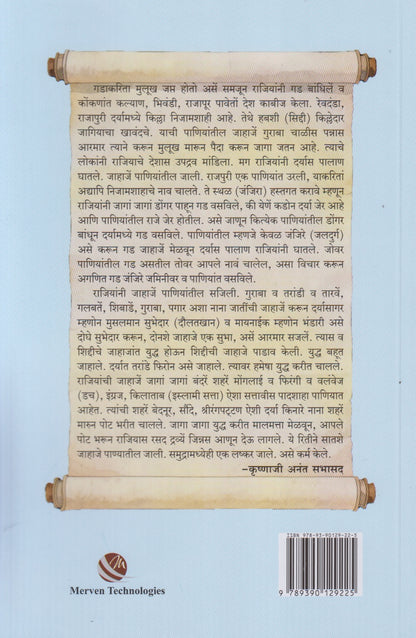 गडाकरिता मुलूख जप्त होतो असें समजून राजियांनी गड बांधिले व
कोंकणांत कल्याण, भिवंडी, राजापूर पावेतों देश काबीज केला. रेवदंडा,
राजापुरी दर्यामध्ये किल्ला निजामशाही आहे. तेथे हबशी (सिद्दी) किल्लेदार
जागियाचा खावंदचे. याची पाणियांतील जाहाजें गुराबा चाळीस पन्नास
आरमार त्याने करून मुलूख मारून पैदा करून जागा जतन आहे. त्याचे
लोकांनी राजियाचे देशास उपद्रव मांडिला. मग राजियांनी दर्यास पालाण
घातले. जाहाजें पाणियांतील जाली. राजपुरी एक पाणियांत उरली, याकरितां
अद्यापि निजामशाहाचे नाव चालते. ते स्थळ (जंजिरा) हस्तगत करावे म्हणून
राजियांनी जागां जागां डोंगर पाहून गड वसविले, की येणें कडोन दर्या जेर आहे
आणि पाणियांतील राजे जेर होतील. असे जाणून कित्येक पाणियांतील डोंगर
बांधून दर्यामध्ये गड वसविले. पाणियांतील म्हणजे केवळ जंजिरे (जलदुर्ग)
असे करून गड जाहाजें मेळवून दर्यास पालाण राजियांनी घातले. जोंवर
पाणियांतील गड असतील तोवर आपले नावं चालेल, असा विचार करून
अगणित गड जंजिरे जमिनीवर व पाणियांत वसविले.
राजियांनी जाहाजें पाणियांतील सजिली. गुराबा व तरांडी व तारवें,
गलबतें, शिबाडें, गुराबा, पगार अशा नाना जातींची जाहाजें करून दर्यासागर
म्हणोन मुसलमान सुभेदार (दौलतखान) व मायनाईक म्हणोन भंडारी असे
दोघे सुभेदार करून, दोनशे जाहाजें एक सुभा, असें आरमार सजलें. त्यास व
शिद्दीचे जाहाजांत युद्ध होऊन शिद्दीची जाहाजे पाडाव केली. युद्ध बहूत
जाहाले. दर्यात तरांडे फिरोन असे जाहाले. त्यावर हमेषा युद्ध करीत चालले.
राजियांची जाहाजें जागां जागां बंदरें शहरें मोंगलाई व फिरंगी व वलंदेज
(डच), इंग्रज, किलाताब (इस्लामी सत्ता) ऐशा सत्तावीस पादशाहा पाणियात
आहेत. त्यांची शहरें बेदनूर, सौंदे, श्रीरंगपट्टण ऐशी दर्या किनारे नाना शहरें
मारून पोट भरीत चालले. जागा जागा युद्ध करीत मालमत्ता मेळवून, आपले
पोट भरून राजियास रसद द्रव्यें जिन्नस आणून देऊ लागले. ये रितीने सातशे
जाहाजें पाण्यातील जाली. समुद्रामध्येही एक लष्कर जाले. असे कर्म केले.
–कृष्णाजी अनंत सभासद
M
Merven Technologies
ISBN 978-93-90129-22-5
9 789390 129225